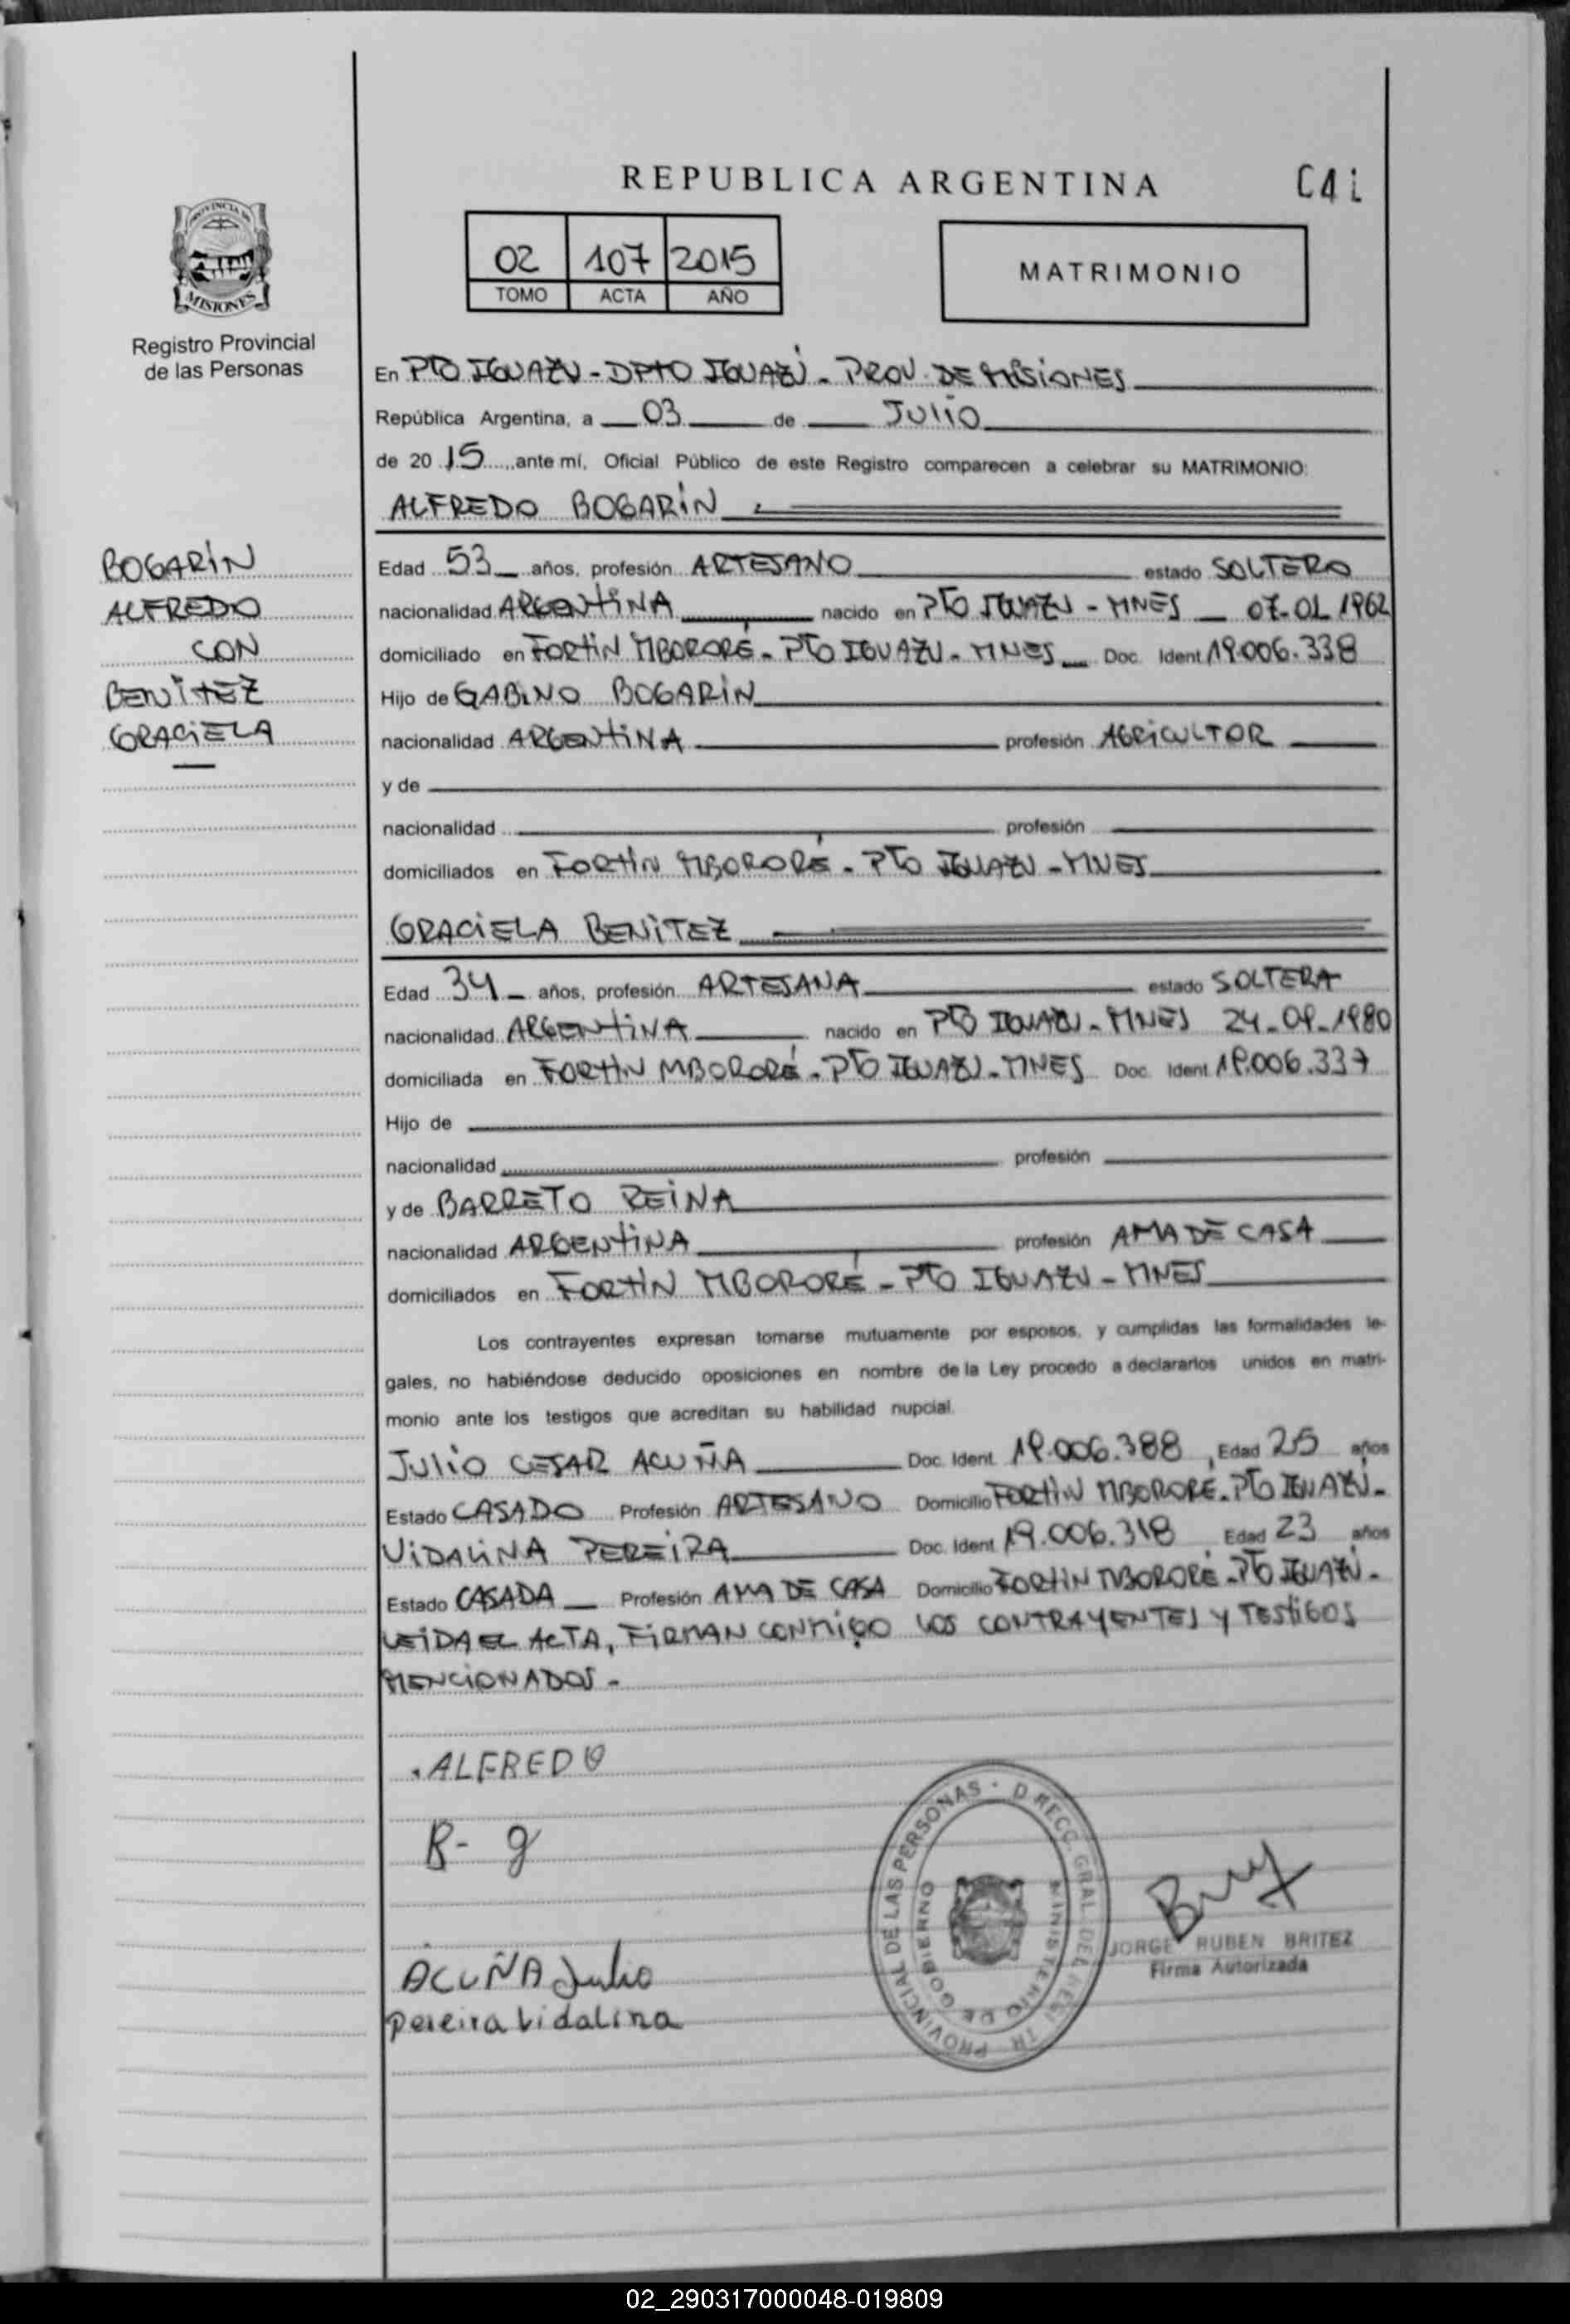 REPUBLICA ARGENTINA
C4i
PROVINCIA DE
MISIONES
Registro Provincial
de las Personas
02 107 2015
TOMO ACTA AÑO
MATRIMONIO
En PTO IGUAZU - DPTO IGUAZÚ - PROV. DE MISIONES
República Argentina, a 03 de JULIO
de 20 15 ante mí, Oficial Público de este Registro comparecen a celebrar su MATRIMONIO:
ALFREDO BOGARÍN
BOGARÍN
ALFREDO
CON
BENITEZ
GRACIELA
Edad 53 años, profesión ARTESANO estado SOLTERO
nacionalidad ARGENTINA nacido en PTO IGUAZU - MNES 07-01 1962
domiciliado en FORTIN MBORORÉ - PTO IGUAZU - MNES Doc. Ident 19.006.338
Hijo de GABINO BOGARÍN
nacionalidad ARGENTINA profesión AGRICULTOR
y de
nacionalidad profesión
domiciliados en FORTIN MBORORÉ - PTO IGUAZU - MNES
GRACIELA BENITEZ
Edad 34 años, profesión ARTESANA estado SOLTERA
nacionalidad ARGENTINA nacido en PTO IGUAZU - MNES
domiciliada en FORTIN MBORORÉ - PTO IGUAZU - MNES Doc. Ident 19.006.337
Hijo de
nacionalidad profesión
y de BARRETO REINA
nacionalidad ARGENTINA profesión AMA DE CASA
domiciliados en FORTIN MBORORÉ - PTO IGUAZU - MNES
Los contrayentes expresan tomarse mutuamente por esposos, y cumplidas las formalidades le-
gales, no habiéndose deducido oposiciones en nombre de la Ley procedo a declararlos unidos en matri-
monio ante los testigos que acreditan su habilidad nupcial.
JULIO CESAR ACUÑA Doc. Ident. 19.006.388, Edad 25 años
Estado CASADO Profesión ARTESANO Domicilio FORTIN MBORORE - PTO IGUAZU -
VIDALINA PEREIRA Doc. Ident. 19.006.318 Edad 23 años
Estado CASADA Profesión AMA DE CASA Domicilio FORTIN MBORORÉ - PTO IGUAZU -
LEIDA EL ACTA, FIRMAN CONMIGO LOS CONTRAYENTES Y TESTIGOS
MENCIONADOS -
ALFREDO
B- g
ACUÑA Julio
pereira vidalina
PROVINCIAL DE LAS PERSONAS
MINISTERIO DE GOBIERNO
JORGE RUBEN BRITEZ
Firma Autorizada
02_290317000048-019809